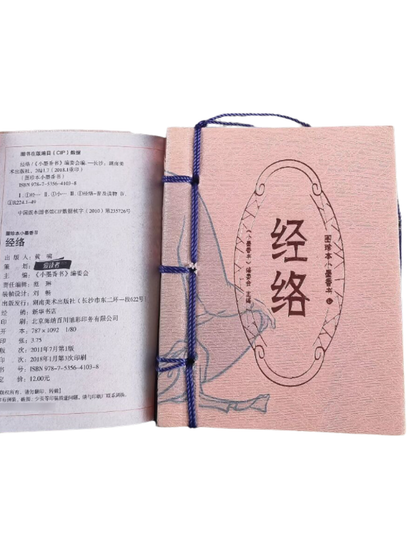 图书在版编目(CIP)数据
经络/《小墨香书》编委会编.—长沙:湖南美
术出版社,2011.7(2018.1重印)
(图珍本小墨香书)
ISBN 978-7-5356-4103-8
中国版本图书馆CIP数据核字(2010)第235726号
图珍本小墨香书
经络
出版人:黄啸
主编:《小墨香书》编委会
责任编辑:
装帧设计:刘
出版发行:湖南美术出版社(长沙市东二环一段622号)
经销:新华书店
印刷:北京海纳百川旭彩印务有限公司
开本:787×1092 1/80
印张:3.75
版次:2011年7月第1版
印次:2018年1月第3次印刷
书号:ISBN 978-7-5356-4103-8
定价:12.00元
图珍本·小墨香书
经络
《小墨香书》编委会 主编